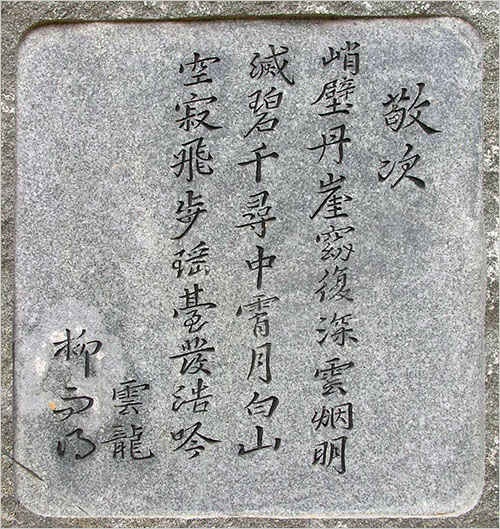 敬次
峭壁丹崖窈復深雲烟明
滅碧千尋中霄月白山
空寂飛步瑤臺發浩吟
雲龍
柳而得